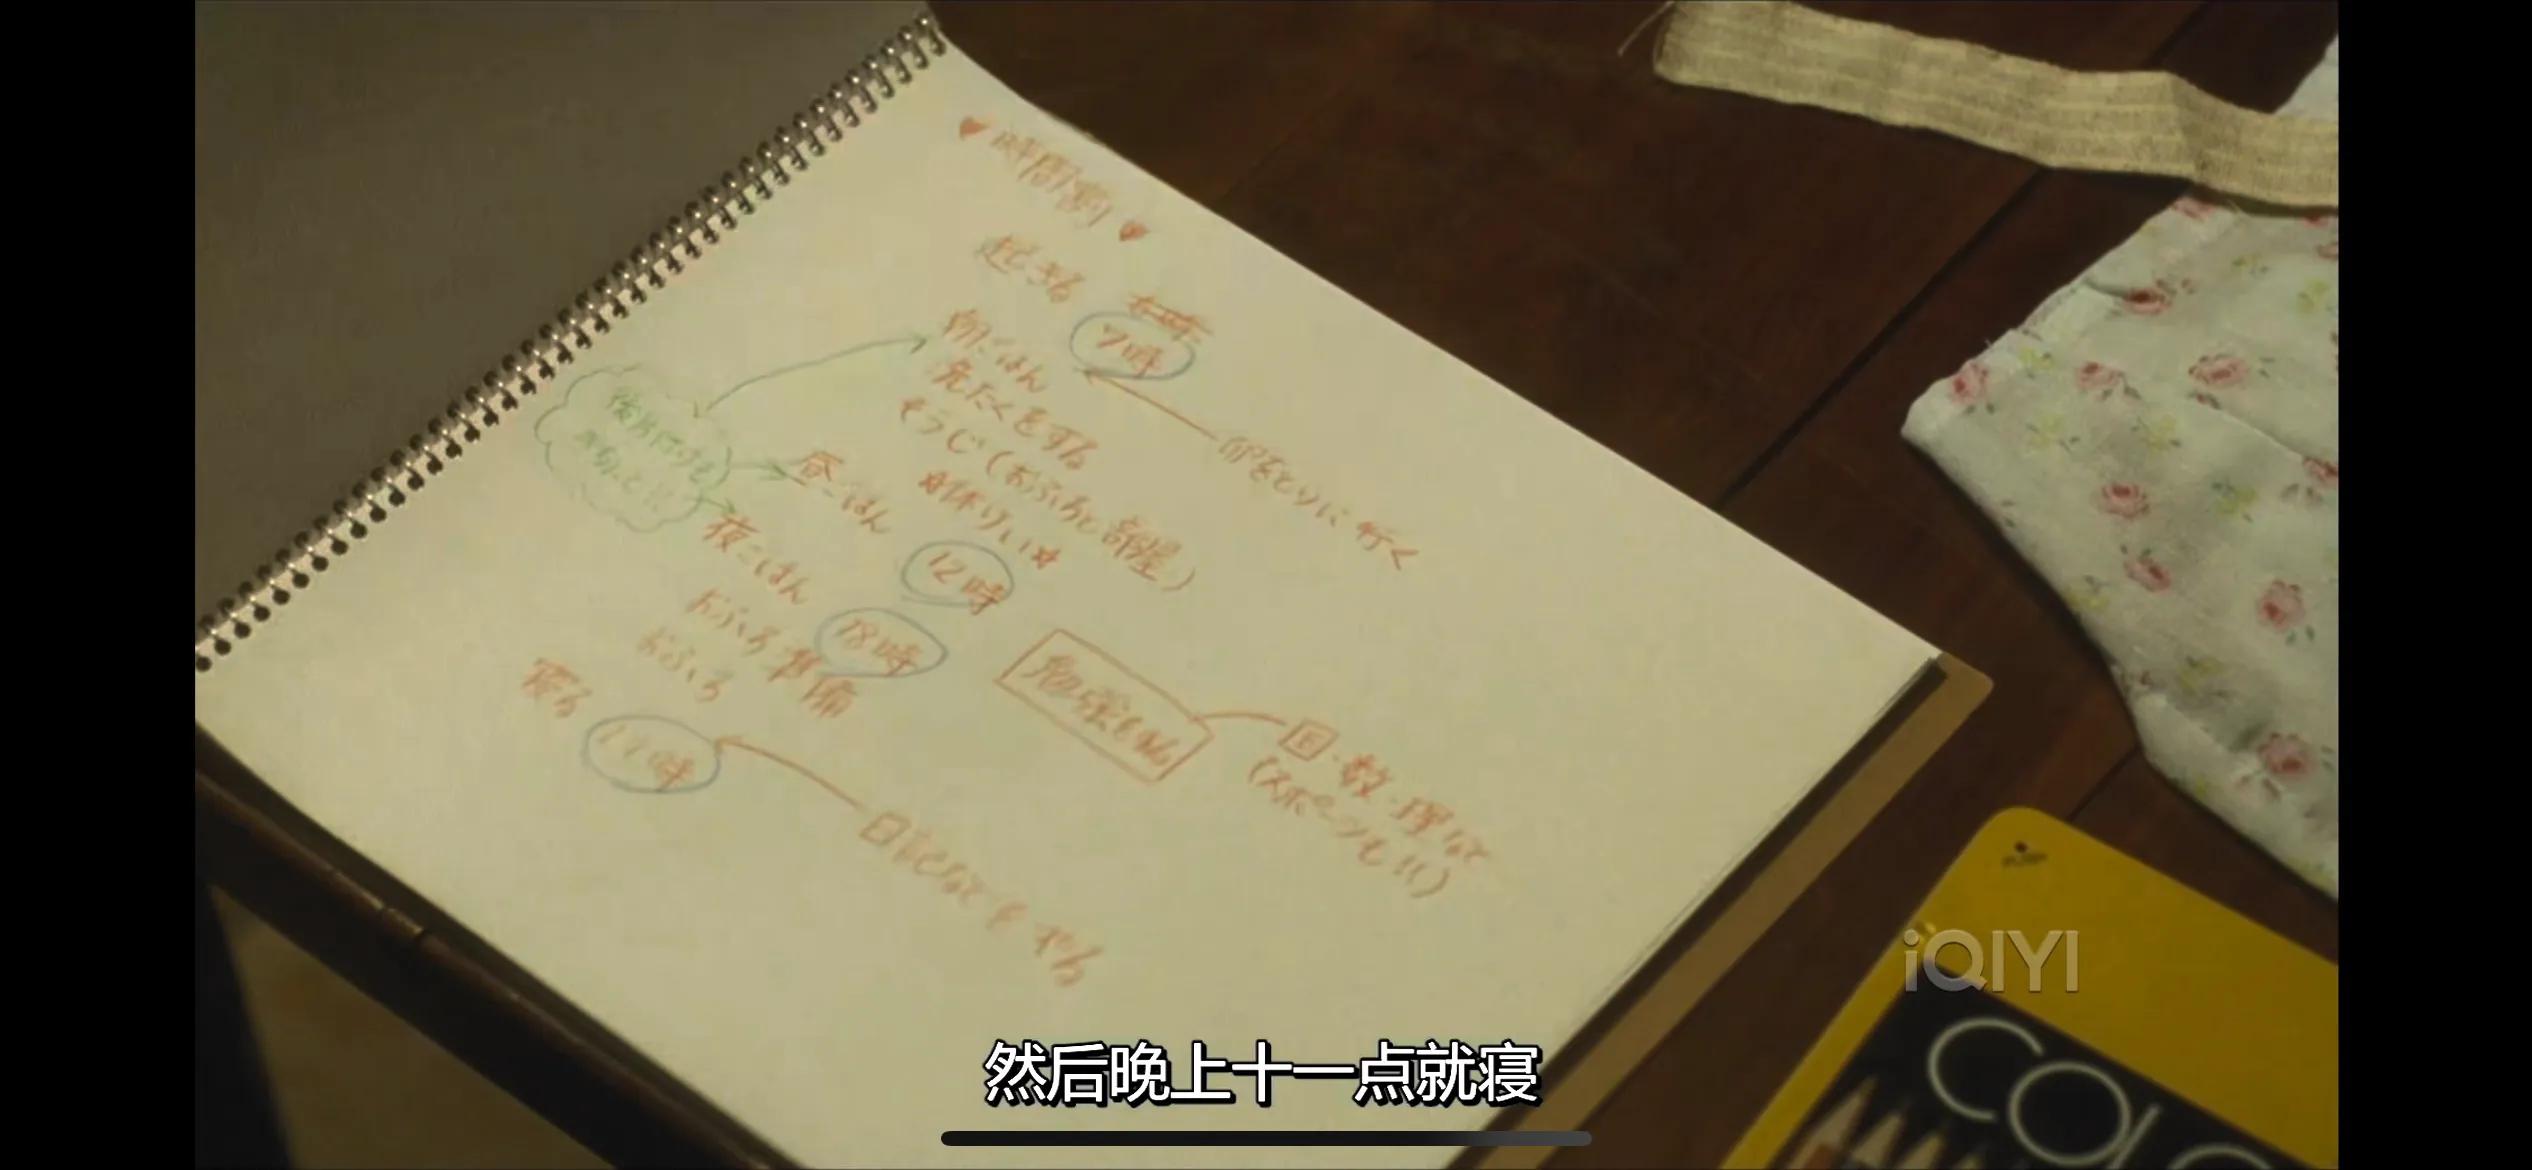 ♥時間割♥
起きる
7時
卵をとりに行く
朝ごはん
先たくをする
そうじ（おふろと部屋）
昼ごはん
12時
後片付けも
夜ごはん
18時
おふろ準備
おふろ
勉強もね
国・数・理など
（スポーツも!!）
寝る
11時
日記などをやる
iQIYI
然后晚上十一点就寝
COLO